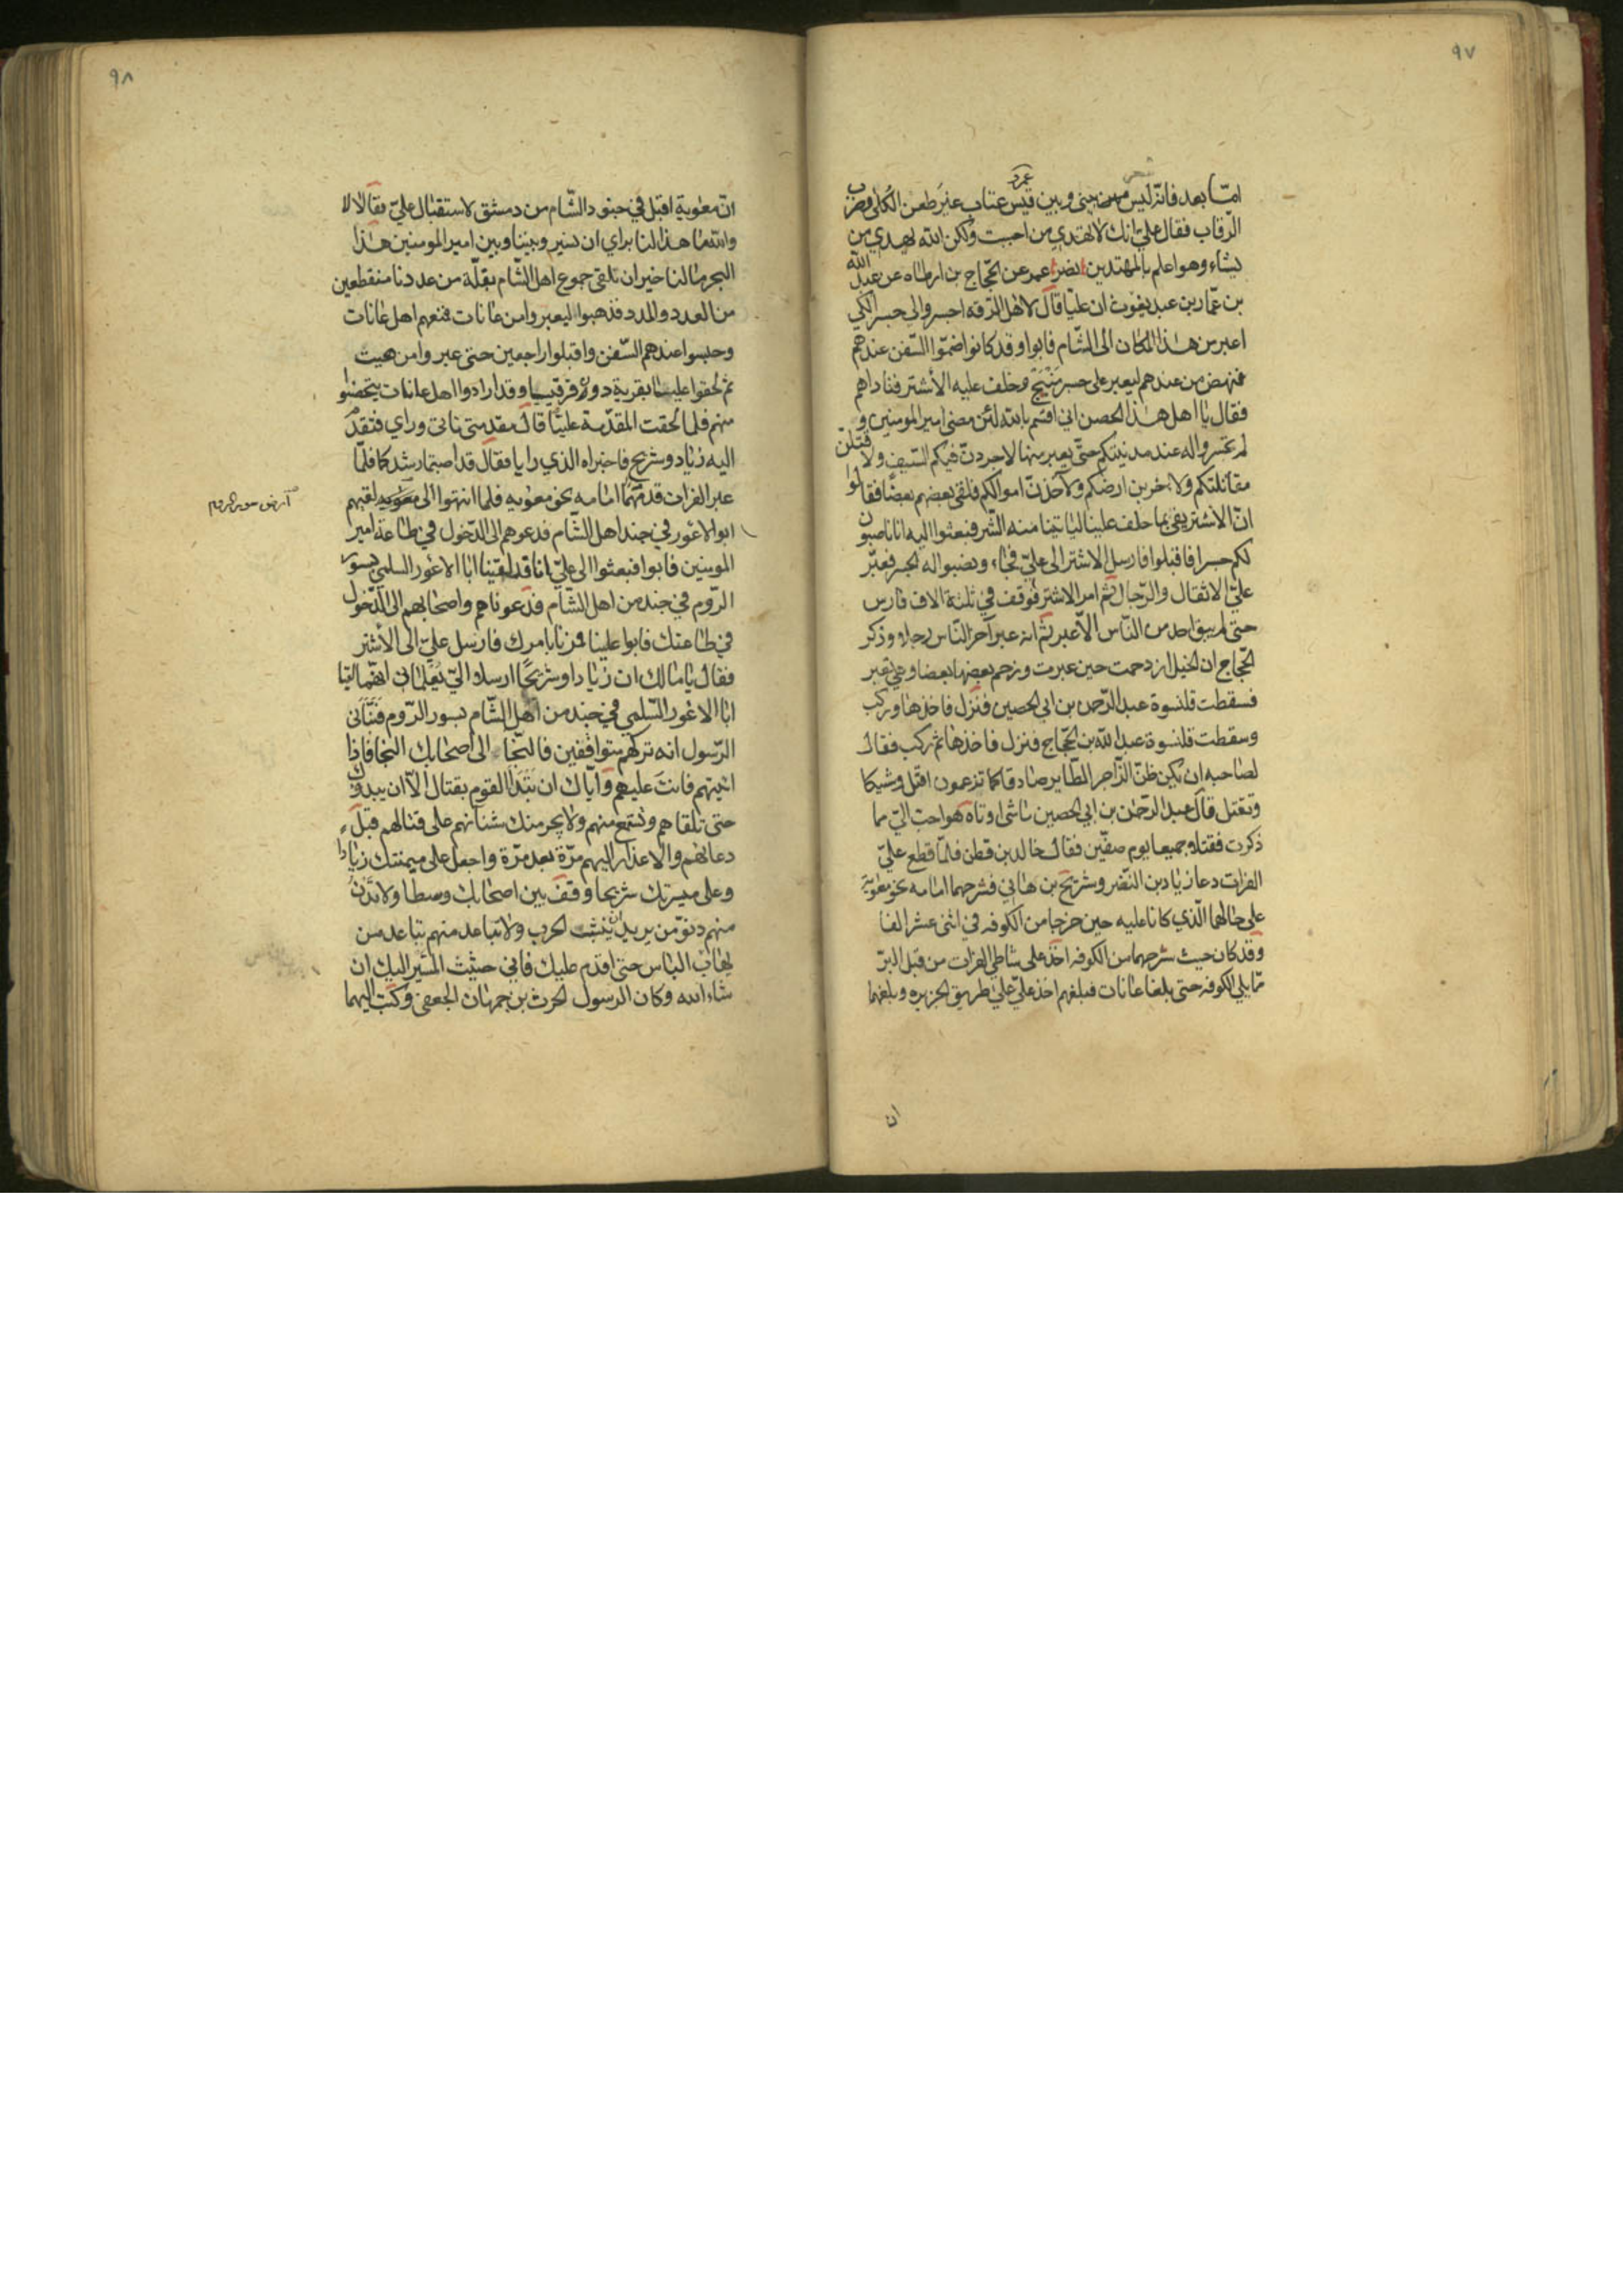 ٩٧
امّا بعد فانّه ليس بينى وبين قيس عتاب غير طعن الكلى وضرب
عمرو
الرقاب فقال علىّ انك لا تهدى من احببت ولكن الله يهدي من
يشاء وهو اعلم بالمهتدين نصر عمر عن الحجّاج بن ارطاه عن عبد الله
بن عمّار بن عبد يغوث ان عليّا قال لاهل الرقه اجسروا لى جسرا لكي
اعبر من هذا المكان الى الشام فابوا وقد كانوا ضمّوا السّفن عندهم
فنهض من عندهم ليعبر على جسر مَنْبِجَ وخلف عليه الأشتر فناداهم
فقال يا اهل هذا الحصن اني اقسم بالله لئن مضى امير المومنين و
لم تجسروا له عند مدينتكم حتّى يعبر منها لاجردنّ فيكم السّيف ولاقتلنّ
مقاتلتكم ولاخربن ارضكم ولاخذنّ اموالكم فلقى بعضهم بعضًا فقالوا
انّ الاشتر يفى بما حلف علينا ليأتينا منه الشّر فبعثوا اليه انا ناصبون
لكم جسرا فاقبلوا فارسل الاشتر الى علىّ فجاء ونصبوا له الجسر فعبّر
علىّ الاثقال والرّجال ثم امر الاشتر فوقف في ثلثة الاف فارس
حتى لم يبق احد من النّاس الّا عبر ثم انه عبر آخر النّاس رجلا وذكر
الحجّاج ان الخيل ازدحمت حين عبرت وزحم بعضها بعضا وهي تعبر
فسقطت قلنسوة عبد الرّحمن بن ابي الحصين فنزل فاخذها وركب
وسقطت قلنسوة عبد الله بن الحجّاج فنزل فاخذها ثم ركب فقال
لصاحبه ان يكن ظنّ الزّاجر الطّاير صادقا كما تزعمون اقتل وشيكا
وتقتل قال عبد الرّحمن بن ابي الحصين ما شى اوتاه هو احبّ اليّ مما
ذكرت فقتلا جميعا يوم صفّين فقال خالد بن قطن فلمّا قطع علىّ
الفرات دعا زياد بن النّضر وشريح بن هانى فسّرحهما امامه نحو معوية
على حالهما الّذي كانا عليه حين خرجا من الكوفه في اثنى عشر الفا
وقد كان حيث سّرحهما من الكوفه اخذ على شاطى الفرات من قبل البرّ
ممّا يلي الكوفه حتى بلغا عانات فبلغهم اخذ علىّ على طريق الجزيره وبلغهما
ان
٩٨
انّ معوية اقبل في جنود الشّام من دمشق لاستقبال علىّ فقالا لا
والله ما هذا لنا براي ان نسير وبيننا وبين امير المومنين هذا
البحر ما لنا خير ان نلقى جموع اهل الشّام بقلّة من عددنا منقطعين
من العدد والمدد فذهبوا ليعبروا من عانات فمنعهم اهل عانات
وحبسوا عندهم السّفن واقبلوا راجعين حتى عبروا من هيت
ثم لحقوا عليا بقرية دون قرقيسيا وقد ارادوا اهل عانات يتحصّنوا
منهم فلما لحقت المقدّمة عليّا قال مقدمتى تاتى ورائي فتقدّم
اليه زياد وشريح فاخبراه الذي رايا فقال قد اصبتما رشدكما فلمّا
عبر الفرات قدمهما امامه نحو معويه فلما انتهوا الى معويه لقيهم
ارض سور الروم
ابو الاعور في جند اهل الشّام فدعوهم الى الدّخول في طاعة امير
المومنين فابوا فبعثوا الى علىّ انا قد لقينا ابا الاعور السلمي بسور
الرّوم في جند من اهل الشّام فدعوناهم واصحابهم الى الدّخول
في طاعتك فابوا علينا فمرنا بامرك فارسل علىّ الى الأشتر
فقال يا مالك ان زيادا وشريحًا ارسلا اليّ يُعلماني انهما لقيا
ابا الاعور السّلمي في جند من اهل الشّام بسور الرّوم فنبّأنى
الرّسول انه تركهم متواقفين فالنّجا الى اصحابك النجا فاذا
اتيتهم فانت عليهم وايّاك ان تبدا القوم بقتال الّا ان يبدوك
حتى تلقاهم وتسمع منهم ولا يجرمنك شنآنهم على قتالهم قبل
دعائهم والاعذار اليهم مرّة بعد مرّة واجعل على ميمنتك زيادا
وعلى ميسرتك شريحا وقف بين اصحابك وسطا ولا تَدْنُ
منهم دنوّ من يريد ان ينشب الحرب ولا تباعد منهم تباعد من
يهاب الباس حتى اقدم عليك فانى حثيث المسّير اليك ان
شاء الله وكان الرسول الحرث بن جمهان الجعفى وكتب اليهما